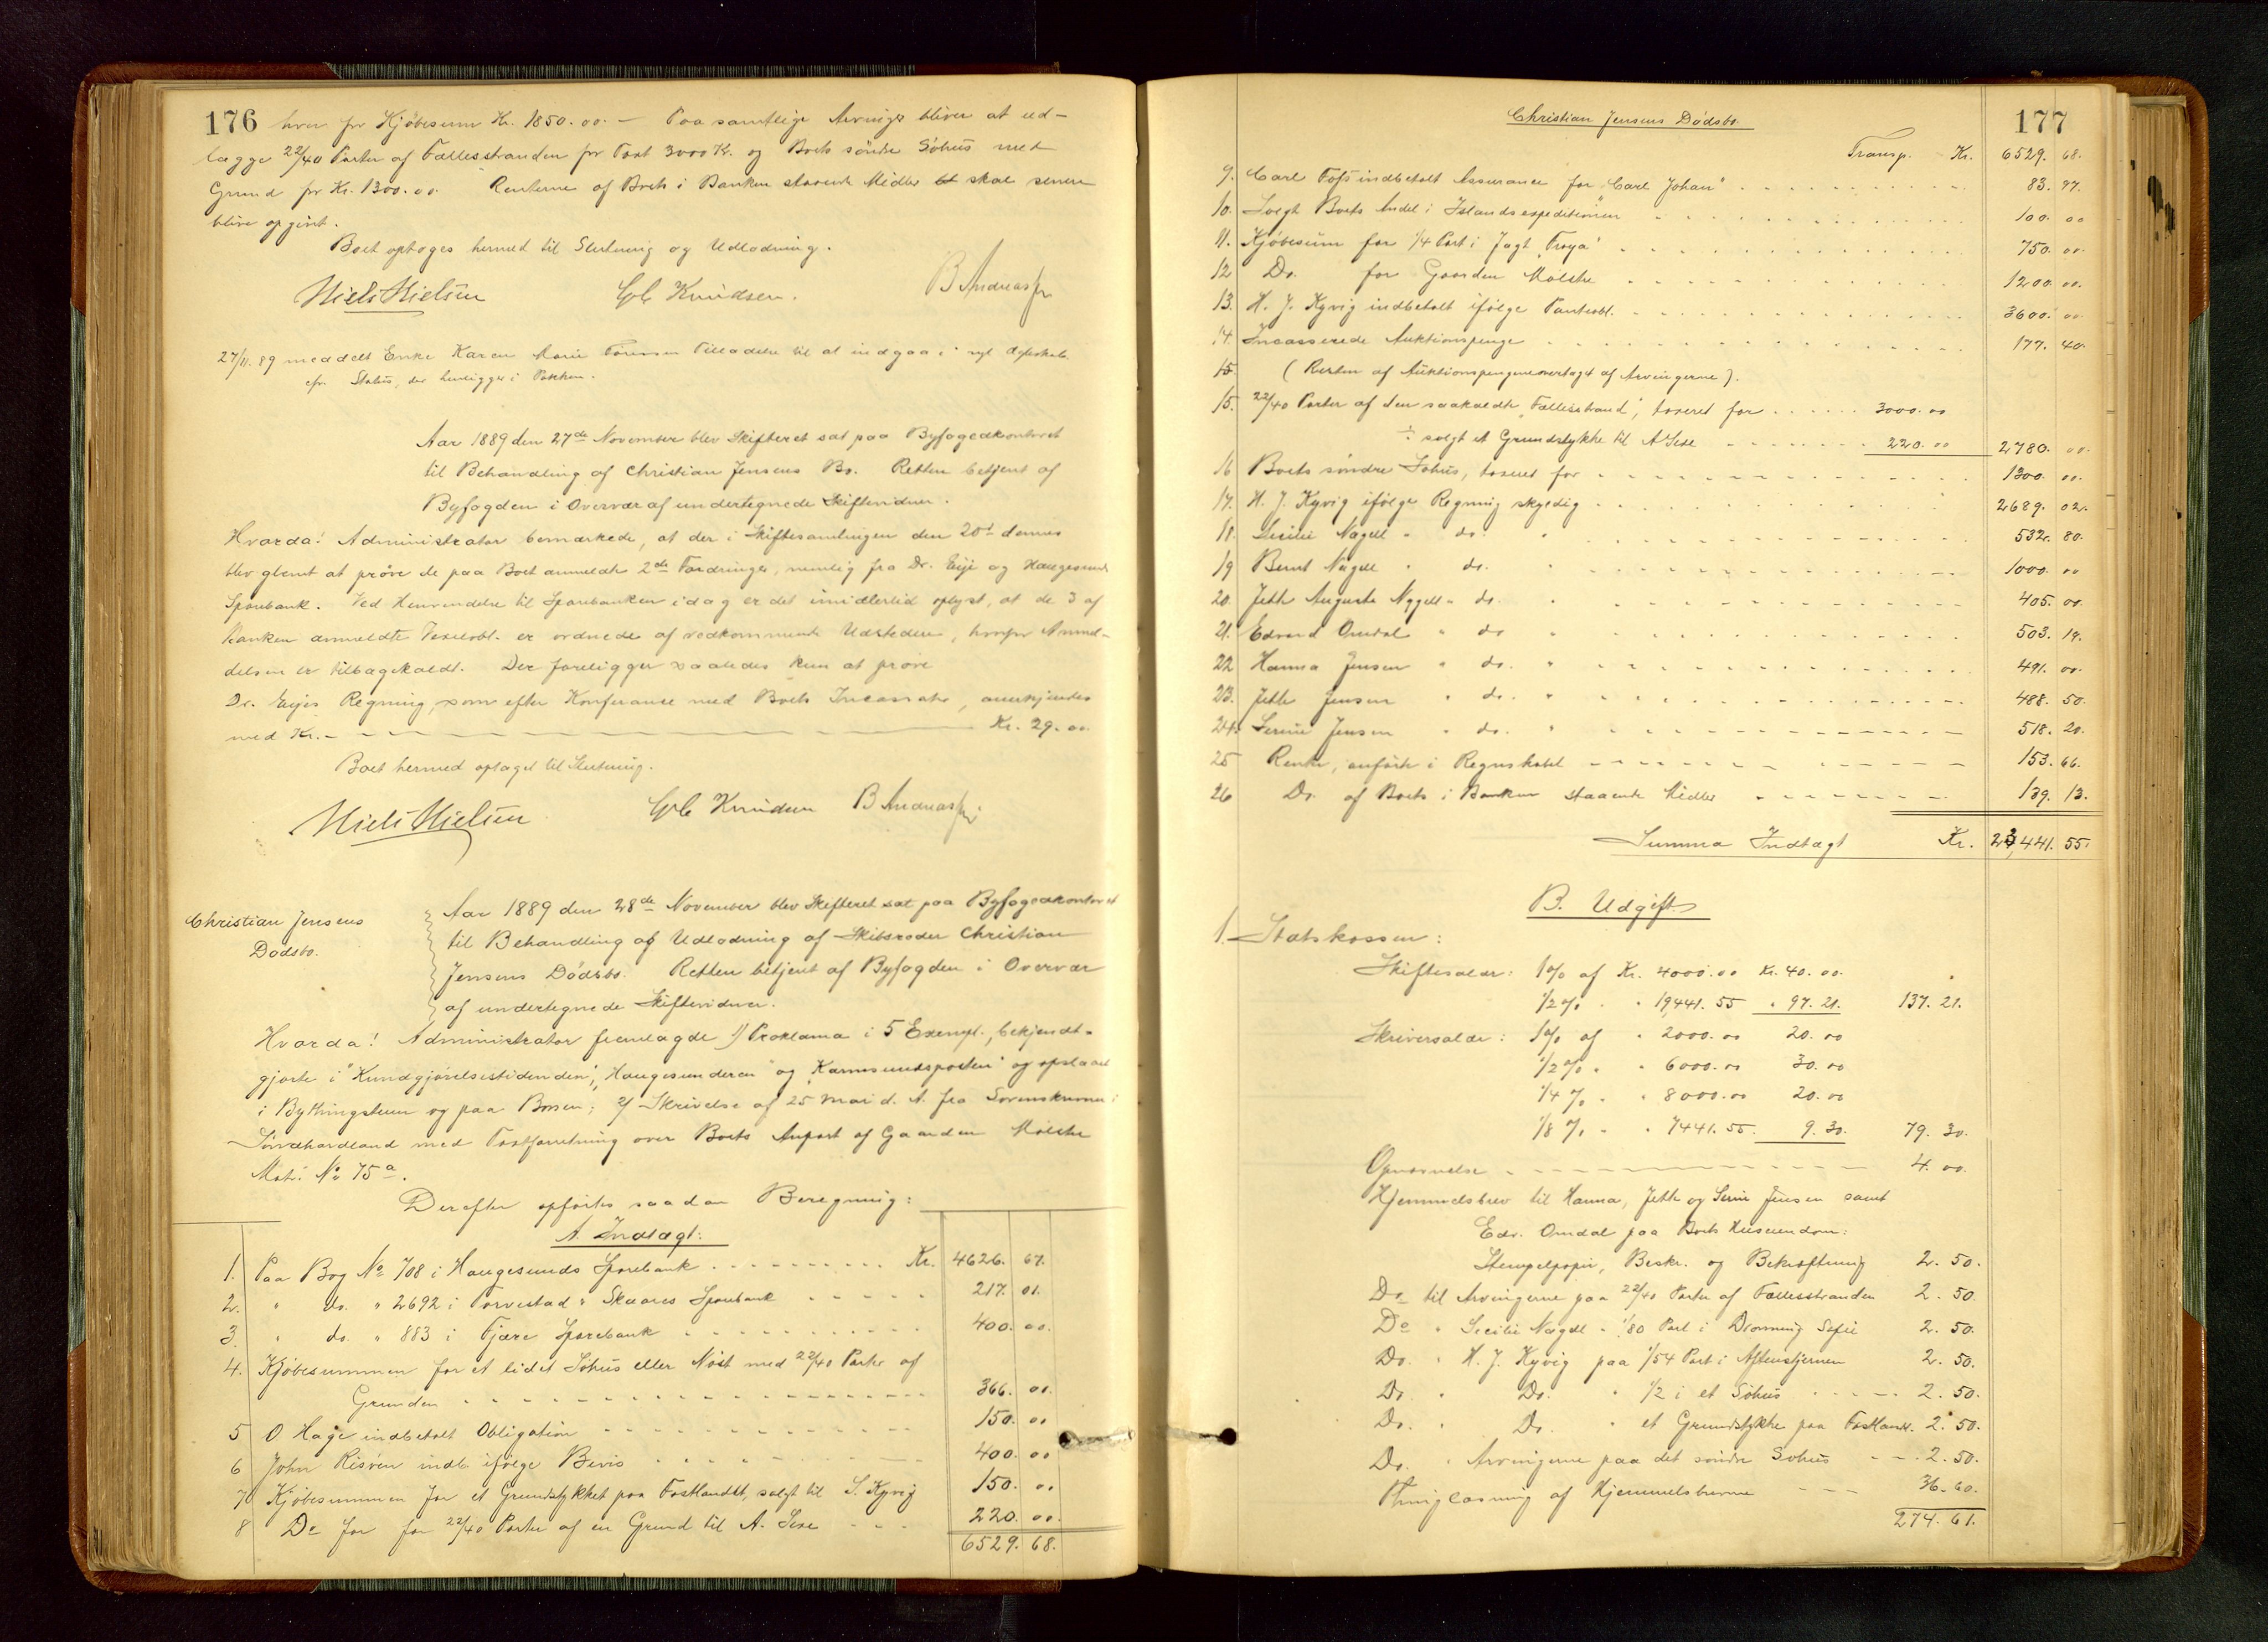 176
hver for Kjøbesum Kr. 1850.00. — Paa samtlige Arvinger bliver at ud-
lægge 22/40 Parter af Fællesstranden for Taxt 3000 Kr. og Boets søndre Søhus med
Grund for Kr. 1300.00. Renterne af Boets i Banken staaende Midler skal senere
blive opgivt.
Boet optoges hermed til Slutning og Udlodning.
Niels Nielsen Knudsen. B Andreas
27/11.89 meddelt Enke Karen Marie Tilladelse til at indgaa i nyt Ægteskab
cfr. Status, der henligger i Pakken.
Aar 1889 den 27de November blev Skifteret sat paa Byfogedkontoret
til Behandling af Christian Jensens Bo. Retten betjent af
Byfogden i Overvær af undertegnede Skiftevidner.
Hvorda! Administrator bemærkede, at der i Skiftesamlingen den 20d dennes
blev glemt at prøve de paa Boet anmeldte 2de Fordringer, nemlig fra Dr. Eije og Haugesunds
Sparebank. Ved Henvendelse til Sparebanken idag er det imidlertid oplyst, at de 3 af
Banken anmeldte Vexelobl. er ordnede af vedkommende Udstedere, hvorfor Anmel-
delsen er tilbagekaldt. Der foreligger saaledes kun at prøve
Dr. Eijes Regning, som efter Konferance med Boets Incassator, anerkjendes
med Kr. — Kr. 29.00.
Boet hermed optaget til Slutning.
Niels Nielsen Knudsen B Andreas
Christian Jensens
Dødsbo.
Aar 1889 den 28de November blev Skifteret sat paa Byfogedkontoret
til Behandling og Udlodning af Skibsreder Christian
Jensens Dødsbo. Retten betjent af Byfogden i Overvær
af undertegnede Skiftevidner.
Hvorda! Administrator fremlagde 1) Proklama i 5 Exempl., bekjendt-
gjorte i "Kundgjørelsestidenden", "Haugesunderen" og "Karmsundsposten" og opslaaet
i Bythingstuen og paa Børsen; 2) Skrivelse af 25 Mai d. A. fra Sorenskriveren i
Søndhordland med Taxtforretning over Boets Anpart af Gaarden Mølstre
Matr. No 75a.
Derefter opførtes saadan Beregning:
A. Indtægt:
1. Paa Bog No 708 i Haugesunds Sparebank Kr. 4626. 67.
2. " do. " 2692 i Torvestad & Skaares Sparebank 217. 01.
3. " do. " 883 i Fjære Sparebank 400. 00.
4. Kjøbesummen for et lidet Søhus eller Nøst med 22/40 Parter af
Grunden 366. 00.
5 O Hage indbetalt Obligation 150. 00
6 John Risøen indb. ifølge Bevis 400. 00
7 Kjøbesummen for et Grundstykket paa Fastlandet, solgt til S. Kyvig 150. 00
8 Do for for 22/40 Parter af en Grund til A. Sexe 220. 00.
6529. 68.
Christian Jensens Dødsbo
177
Transp. Kr. 6529. 68.
9. Carl indbetalt Assurance for "Carl Johan" 83. 97.
10. Solgt Boets Andel i Islandsexpeditionen 100. 00
11. Kjøbesum for 1/4 Part i Jagt "Frøya" 750. 00.
12 Do. for Gaarden Mølstre 1200. 00.
13. H. J. Kyvig indbetalt ifølge Panteobl. 3600. 00
14. Incasserede Auktionspenge 177. 40.
15. (Resten af Auktionspengene overtaget af Arvingerne).
15. 22/40 Parter af den saakaldte "Fællesstrand", taxeret for 3000.00
÷ solgt et Grundstykke til A Sexe 220.00 2780. 00.
16 Boets søndre Søhus, taxeret for 1300. 00.
17. H. J. Kyvig ifølge Regning skyldig 2689. 02.
18. Sicilie Nagell " do. " 532. 80.
19 Bernt Nagell " do. " 1000. 00
20. Jette Auguste Nagell " do. " 405. 00.
21. Edvard Omdal " do " 503. 19.
22 Hanna Jensen " do. " 491. 00.
23. Jette Jensen " do. " 488. 50.
24. Serine Jensen " do. " 518. 20.
25 Renter, anførte i Regnskabet 153. 66.
26 Do. af Boets i Banken staaende Midler 139. 13.
Summa Indtægt Kr. 23,441. 55.
B. Udgift
1. Statskassen:
Skiftesalær: 1% af Kr. 4000.00 Kr. 40.00.
1/2% " " 19441.55 " 97.21. 137. 21.
Skriversalær: 1% af " 2000.00 20.00
1/2% " " 6000.00 30.00
1/4% " " 8000.00 20.00
1/8% " " 7441.55 9.30. 79. 30.
Opnævnelse 4. 00.
Hjemmelsbrev til Hanna, Jette og Serine Jensen samt
Edv. Omdal paa Boets Huseiendom:
Stempelpapir, Beskr. og Bekræftning 2. 50.
Do til Arvingerne paa 22/40 Parter af Fællesstranden 2. 50.
Do " Sicilie Nagell " 1/80 Part i Dronning Sofie 2. 50.
Do. " H. J. Kyvig paa 1/54 Part i Aftenstjernen 2. 50.
Do. " Do. " 1/2 i et Søhus 2. 50.
Do. " Do. " et Grundstykke paa Fastlandt. 2. 50.
Do. " Arvingerne paa det søndre Søhus 2. 50.
Thinglæsning af Hjemmelsbrevene 36. 60.
274. 61.